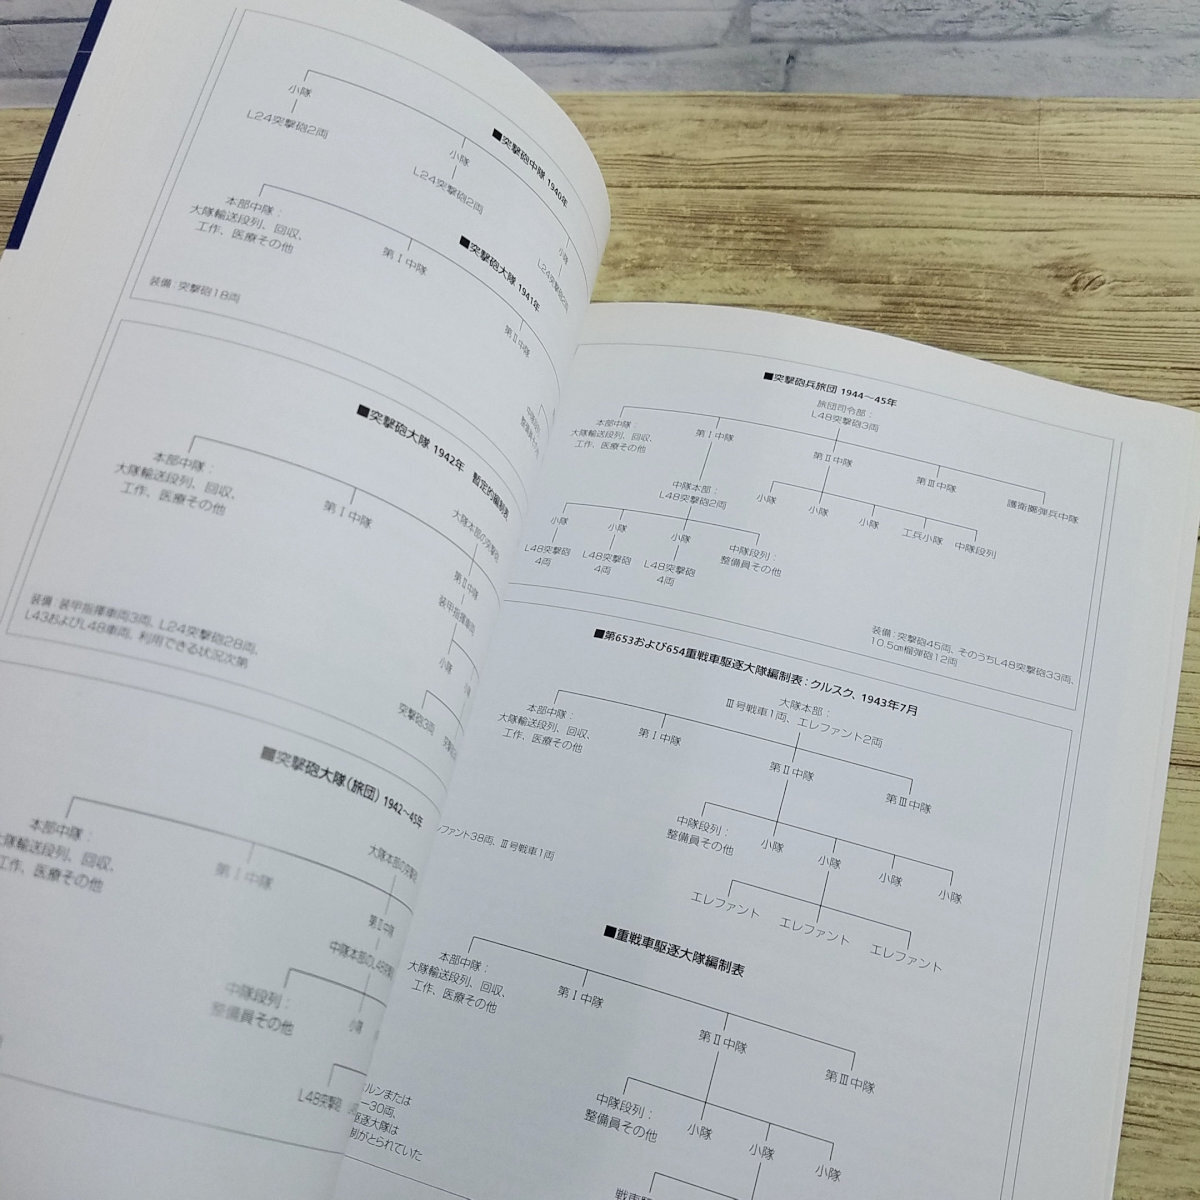 ■突撃砲中隊 1940年
小隊
L24突撃砲2両
小隊
L24突撃砲2両
小隊
L24突撃砲2両
■突撃砲大隊 1941年
本部中隊：
大隊輸送段列、回収、
工作、医療その他
第Ⅰ中隊
第Ⅱ中隊
中隊段列
整備員その他
装備：突撃砲18両
■突撃砲大隊 1942年 暫定的編制表
大隊本部の突撃砲
本部中隊：
大隊輸送段列、回収、
工作、医療その他
第Ⅰ中隊
第Ⅱ中隊
装甲指揮車両
小隊
突撃砲3両
装備：装甲指揮車両3両、L24突撃砲28両、
L43およびL48車両、利用できる状況次第
■突撃砲大隊（旅団）1942～45年
大隊本部の突撃砲
本部中隊：
大隊輸送段列、回収、
工作、医療その他
第Ⅰ中隊
第Ⅱ中隊
中隊段列：
整備員その他
小隊
L48突撃砲
■突撃砲兵旅団 1944～45年
旅団司令部：
L48突撃砲3両
本部中隊：
大隊輸送段列、回収、
工作、医療その他
第Ⅰ中隊
第Ⅱ中隊
第Ⅲ中隊
護衛擲弾兵中隊
中隊本部：
L48突撃砲2両
小隊
小隊
小隊
工兵小隊
中隊段列
小隊
小隊
小隊
中隊段列：
整備員その他
L48突撃砲
4両
L48突撃砲
4両
L48突撃砲
4両
装備：突撃砲45両、そのうちL48突撃砲33両、
10.5cm榴弾砲12両
■第653および654重戦車駆逐大隊編制表：クルスク、1943年7月
大隊本部：
Ⅲ号戦車1両、エレファント2両
本部中隊：
大隊輸送段列、回収、
工作、医療その他
第Ⅰ中隊
第Ⅱ中隊
第Ⅲ中隊
中隊段列：
整備員その他
小隊
小隊
小隊
小隊
エレファント
エレファント
エレファント
ファント38両、Ⅲ号戦車1両
■重戦車駆逐大隊編制表
本部中隊：
大隊輸送段列、回収、
工作、医療その他
第Ⅰ中隊
第Ⅱ中隊
第Ⅲ中隊
中隊段列：
整備員その他
小隊
小隊
小隊
ルンまたは
ー30両、
駆逐大隊は
制がとられていた